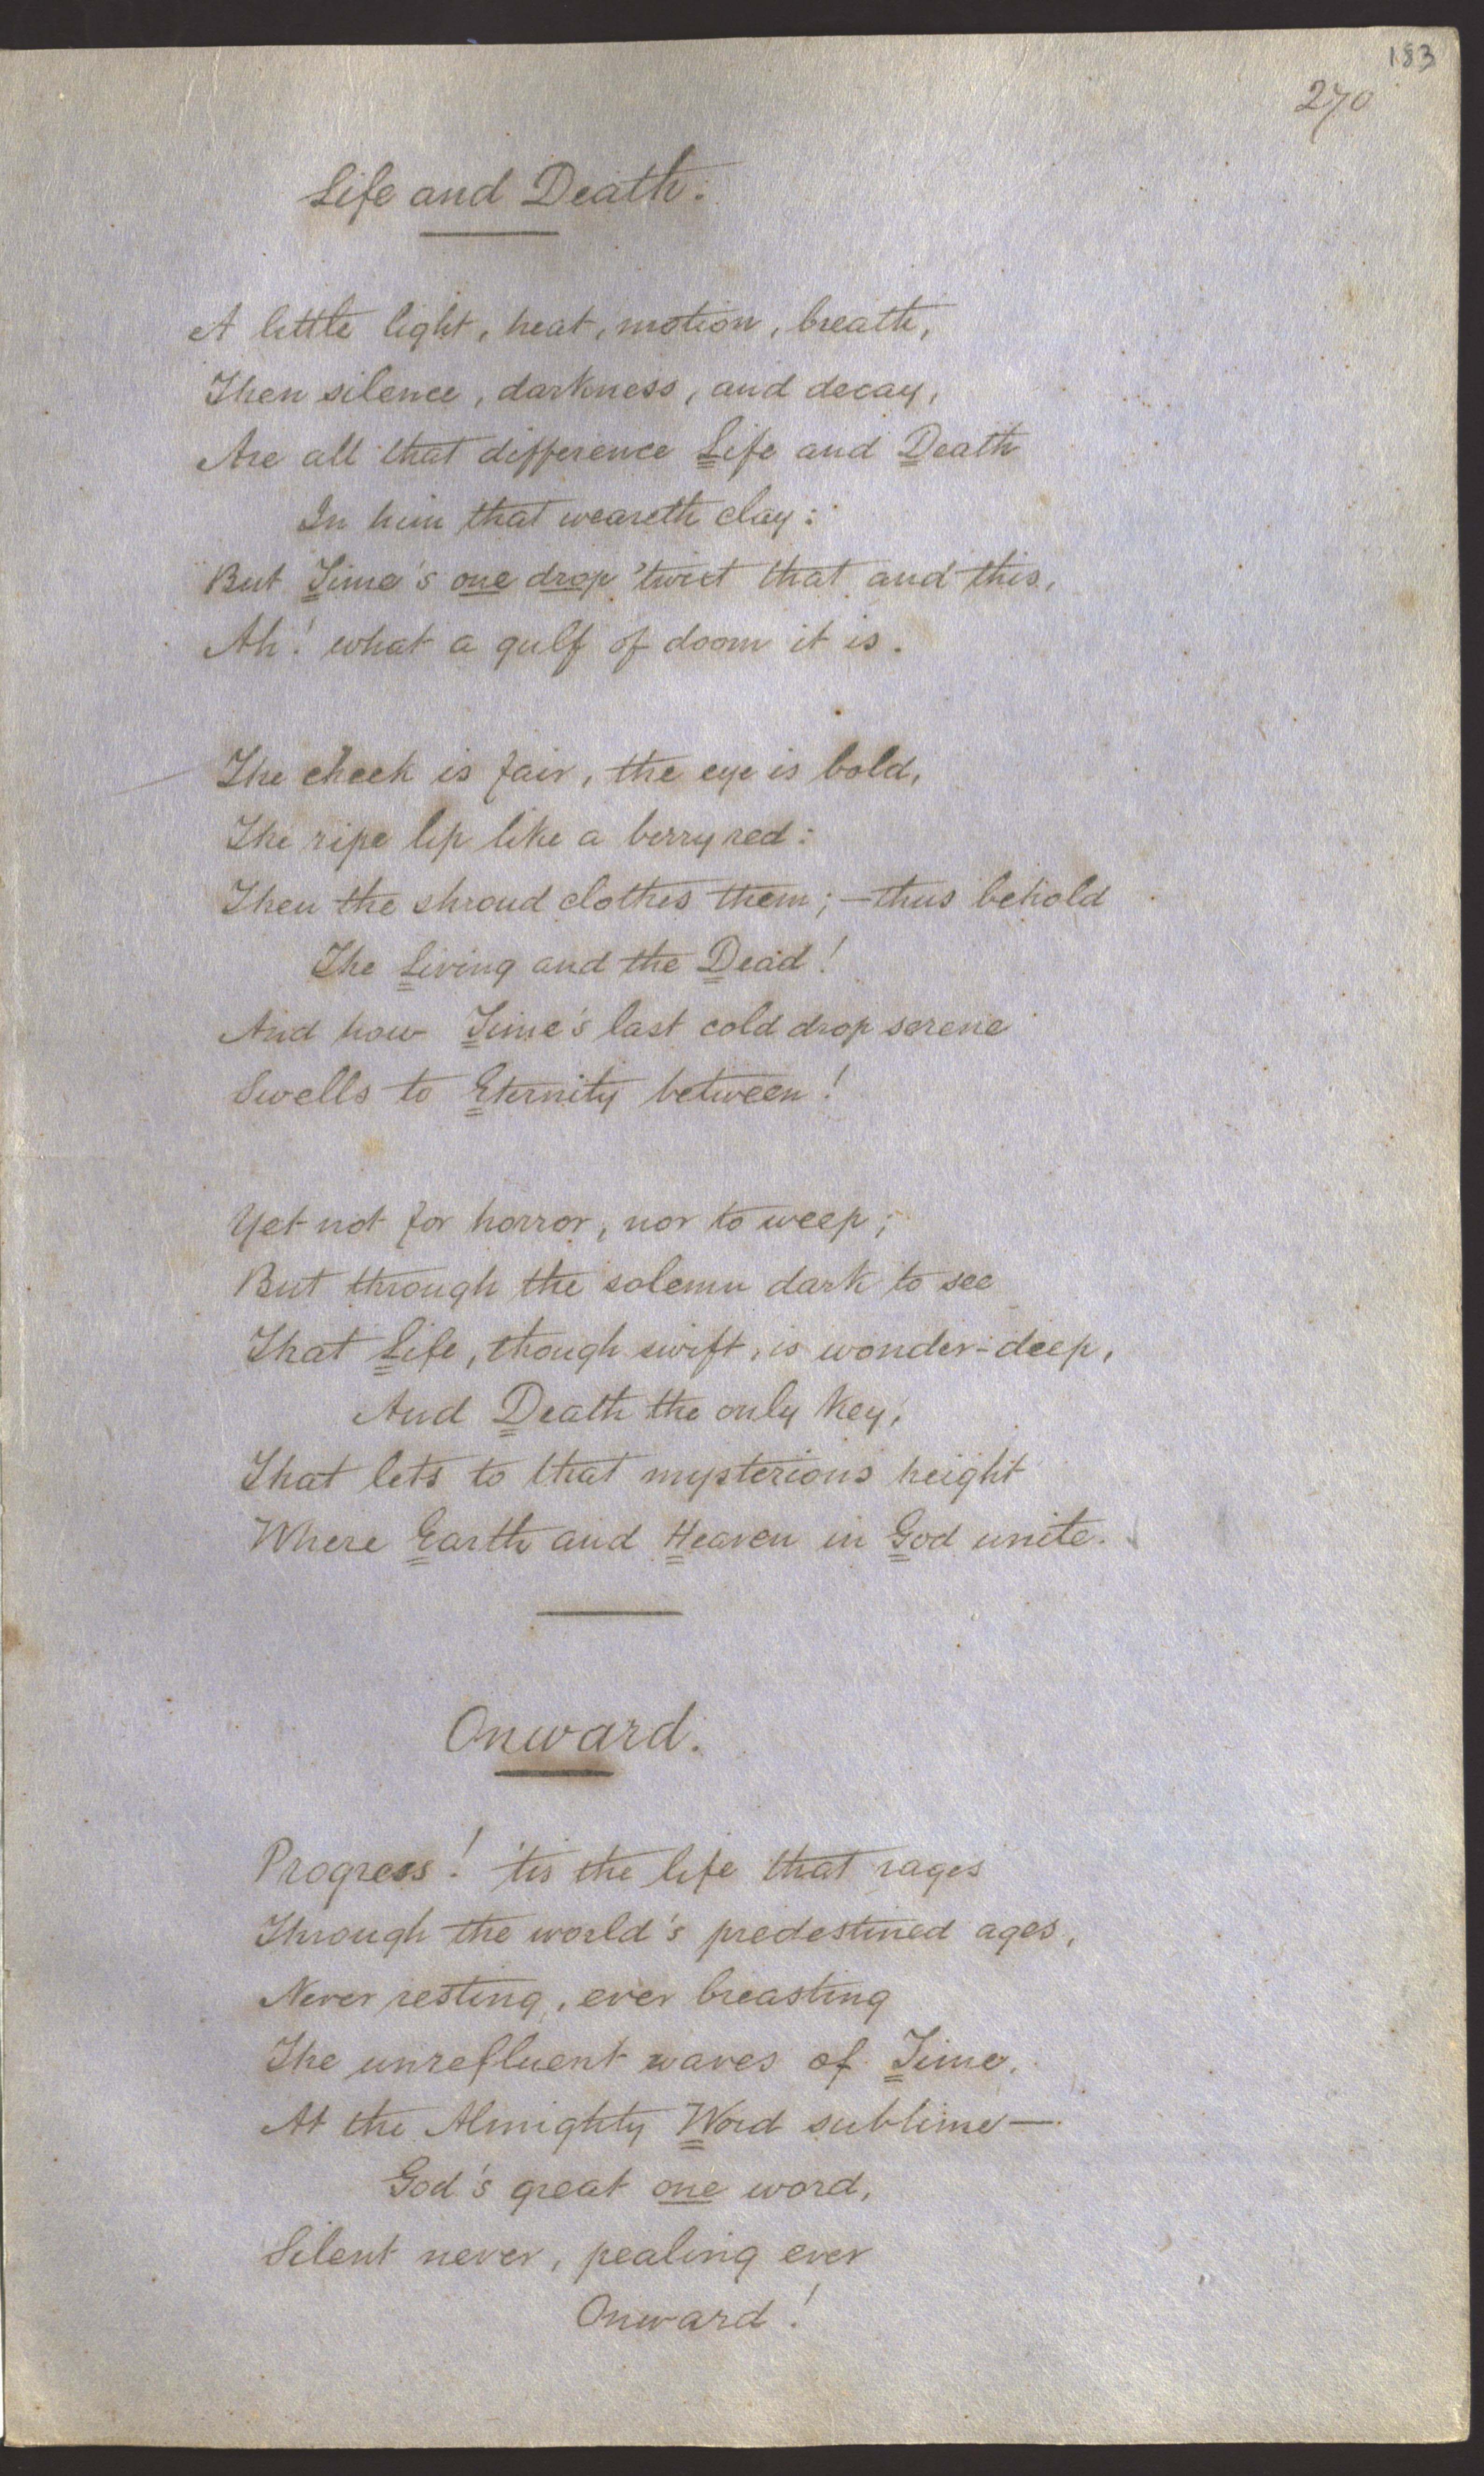 183
270
Life and Death.
A little light, heat, motion, breath,
Then silence, darkness, and decay,
Are all that difference Life and Death
In him that weareth clay:
But Time's one drop 'twixt that and this,
Ah! what a gulf of doom it is.
The cheek is fair, the eye is bold,
The ripe lip like a berry red:
Then the shroud clothes them; — thus behold
The Living and the Dead!
And how Time's last cold drop serene
Swells to Eternity between!
Yet not for horror, nor to weep;
But through the solemn dark to see
That Life, though swift, is wonder-deep,
And Death the only key,
That lets to that mysterious height
Where Earth and Heaven in God unite.
Onward.
Progress! 'tis the life that rages
Through the world's predestined ages,
Never resting, ever breasting
The unrefluent waves of Time.
At the Almighty Word sublime —
God's great one word,
Silent never, pealing ever
Onward!